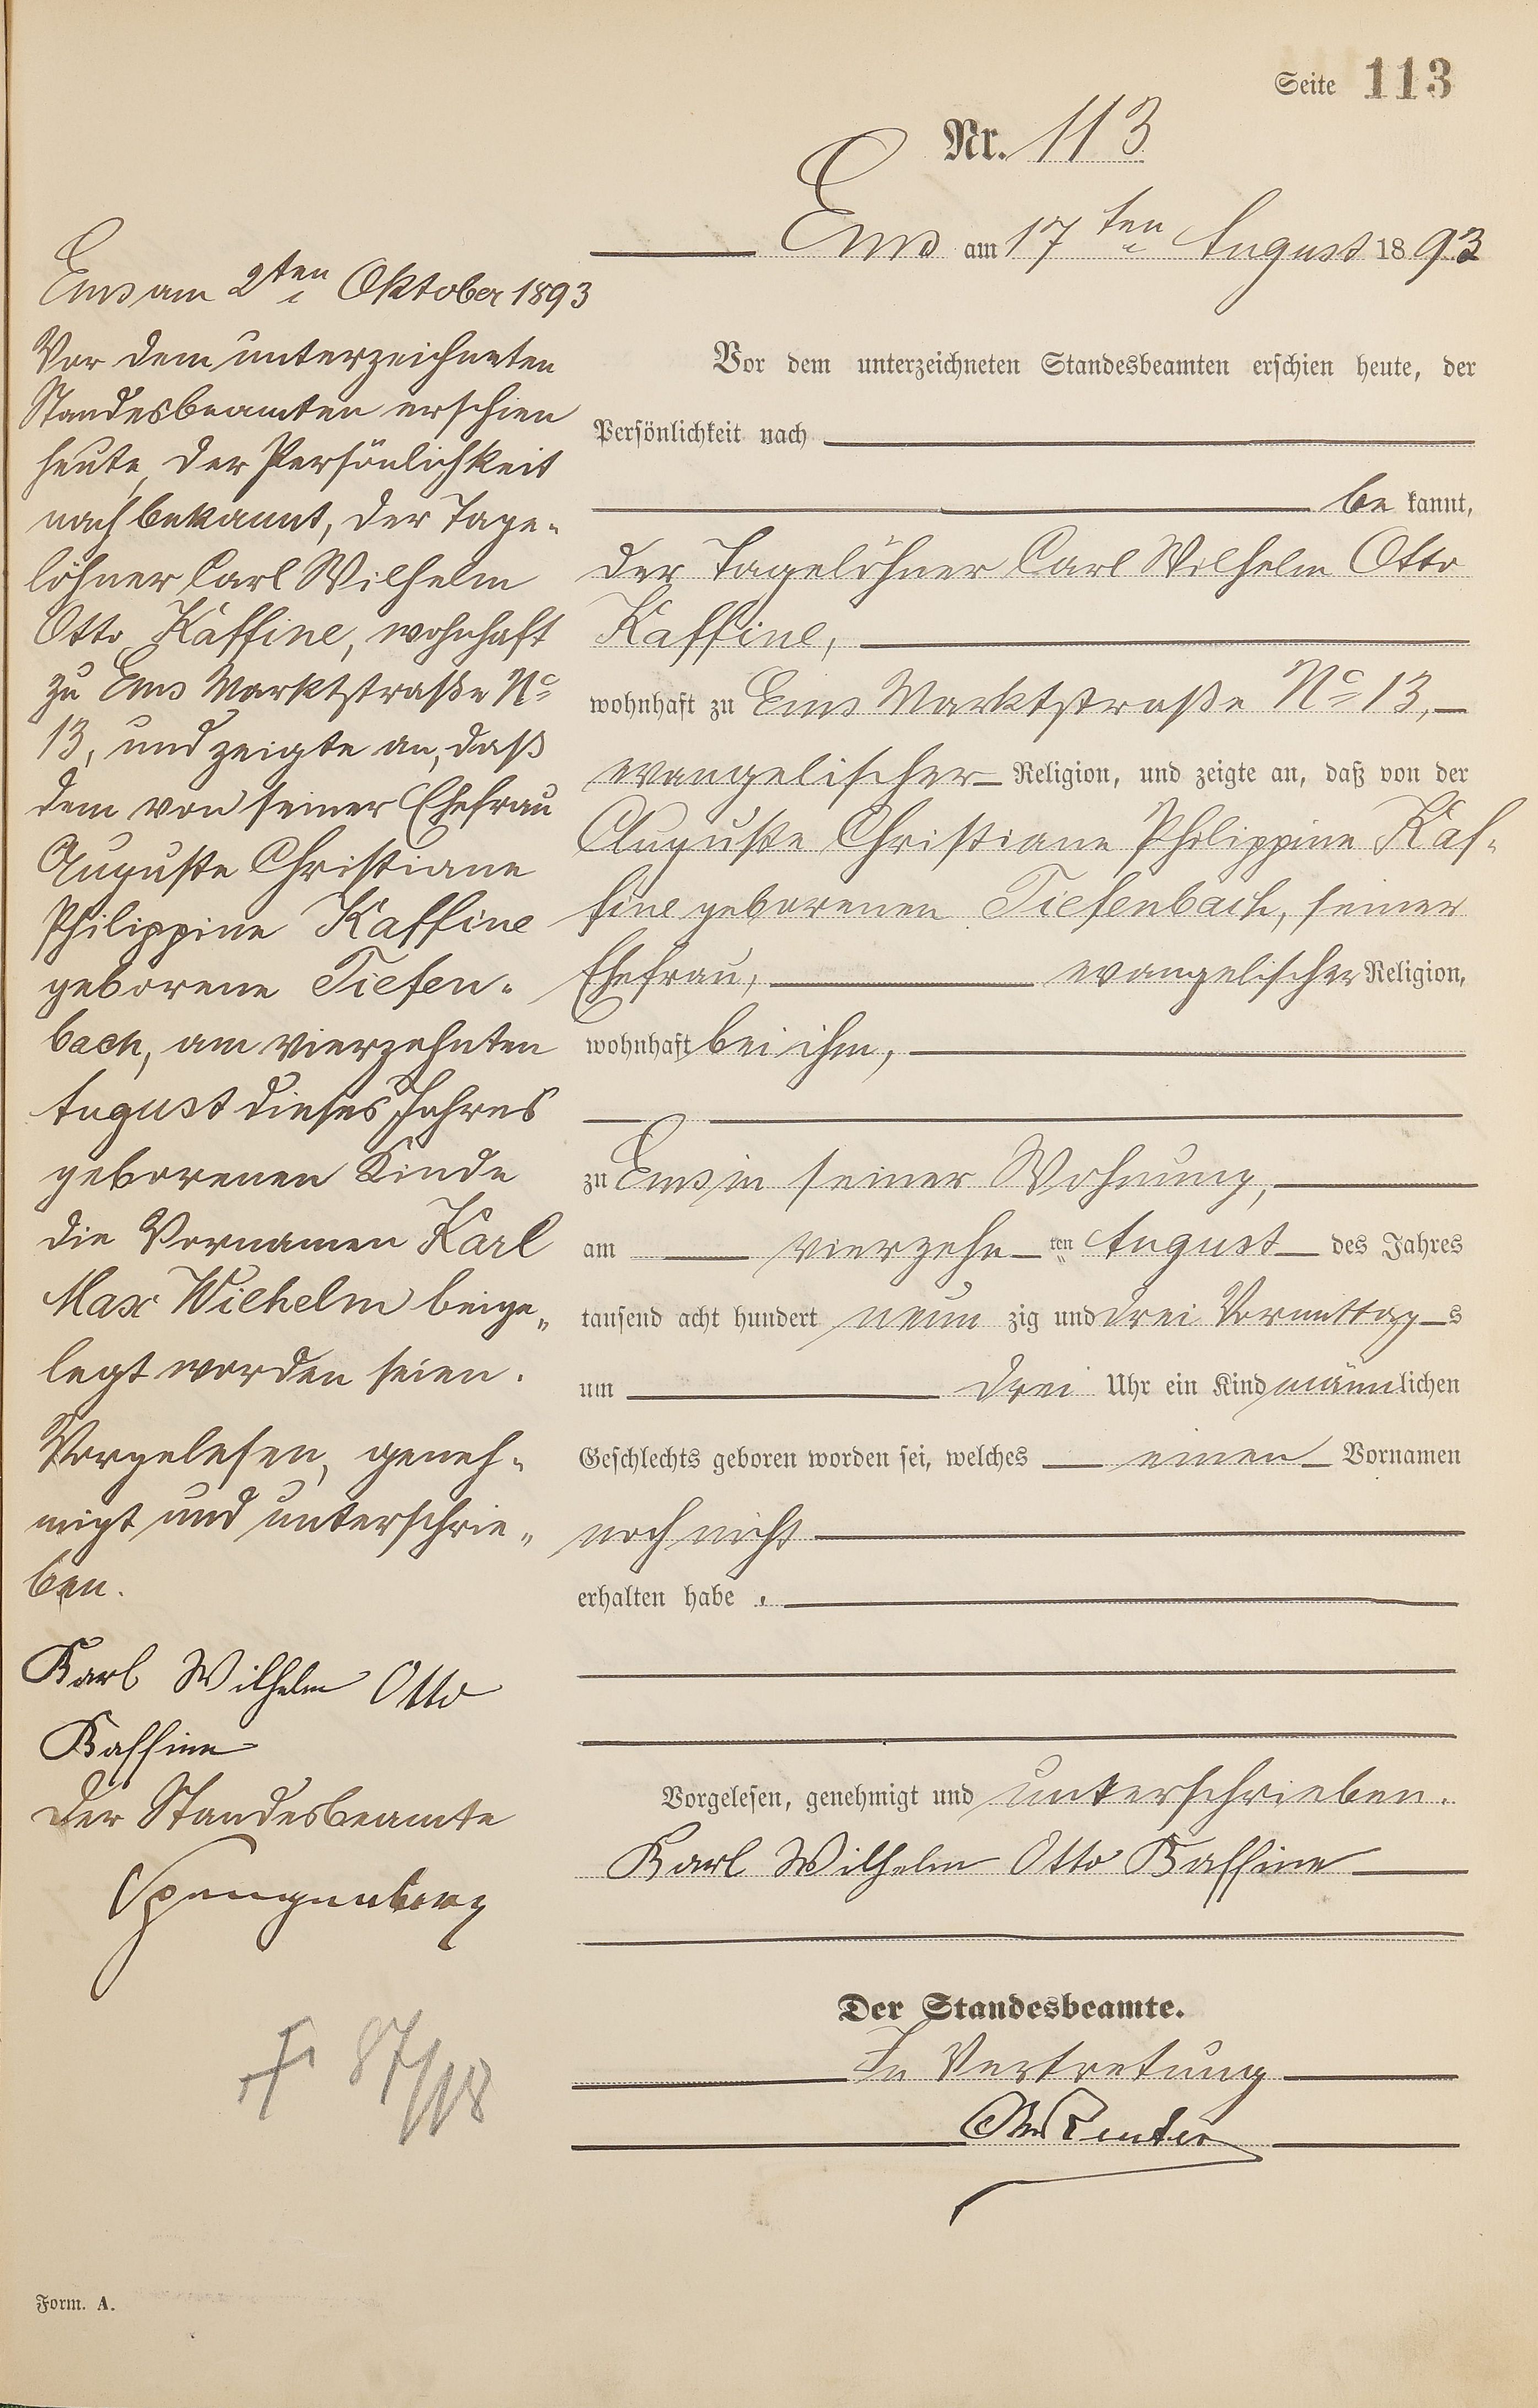 Seite 113
Nr. 113
Ems am 17ten August 1893
Vor dem unterzeichneten Standesbeamten erschien heute, der
Persönlichkeit nach
be kannt,
der Tagelöhner Carl Wilhelm Otto
Kaffine,
wohnhaft zu Ems Marktstraße No 13,
evangelischer Religion, und zeigte an, daß von der
Auguste Christiane Philippine Kaf-
fine geborenen Tiefenbach, seiner
Ehefrau, evangelischer Religion,
wohnhaft bei ihm,
zu Ems in seiner Wohnung,
am vierzehn ten August des Jahres
tausend acht hundert neun zig und drei Vormittag s
um drei Uhr ein Kind männlichen
Geschlechts geboren worden sei, welches einen Vornamen
noch nicht
erhalten habe .
Vorgelesen, genehmigt und unterschrieben.
Karl Wilhelm Otto Kaffine
Der Standesbeamte.
In Vertretung
Ems am 2ten Oktober 1893
Vor dem unterzeichneten
Standesbeamten erschien
heute, der Persönlichkeit
nach bekannt, der Tage-
löhner Carl Wilhelm
Otto Kaffine, wohnhaft
zu Ems Marktstraße No
13, und zeigte an, daß
dem von seiner Ehefrau
Auguste Christiane
Philippine Kaffine
geborene Tiefen-
bach, am vierzehnten
August dieses Jahres
geborenen Kinde
die Vornamen Karl
Max Wilhelm beige-
legt worden seien.
Vorgelesen, geneh-
migt und unterschrie-
ben.
Karl Wilhelm Otto
Kaffine
Der Standesbeamte
Spangenberg
87/18
Form. A.